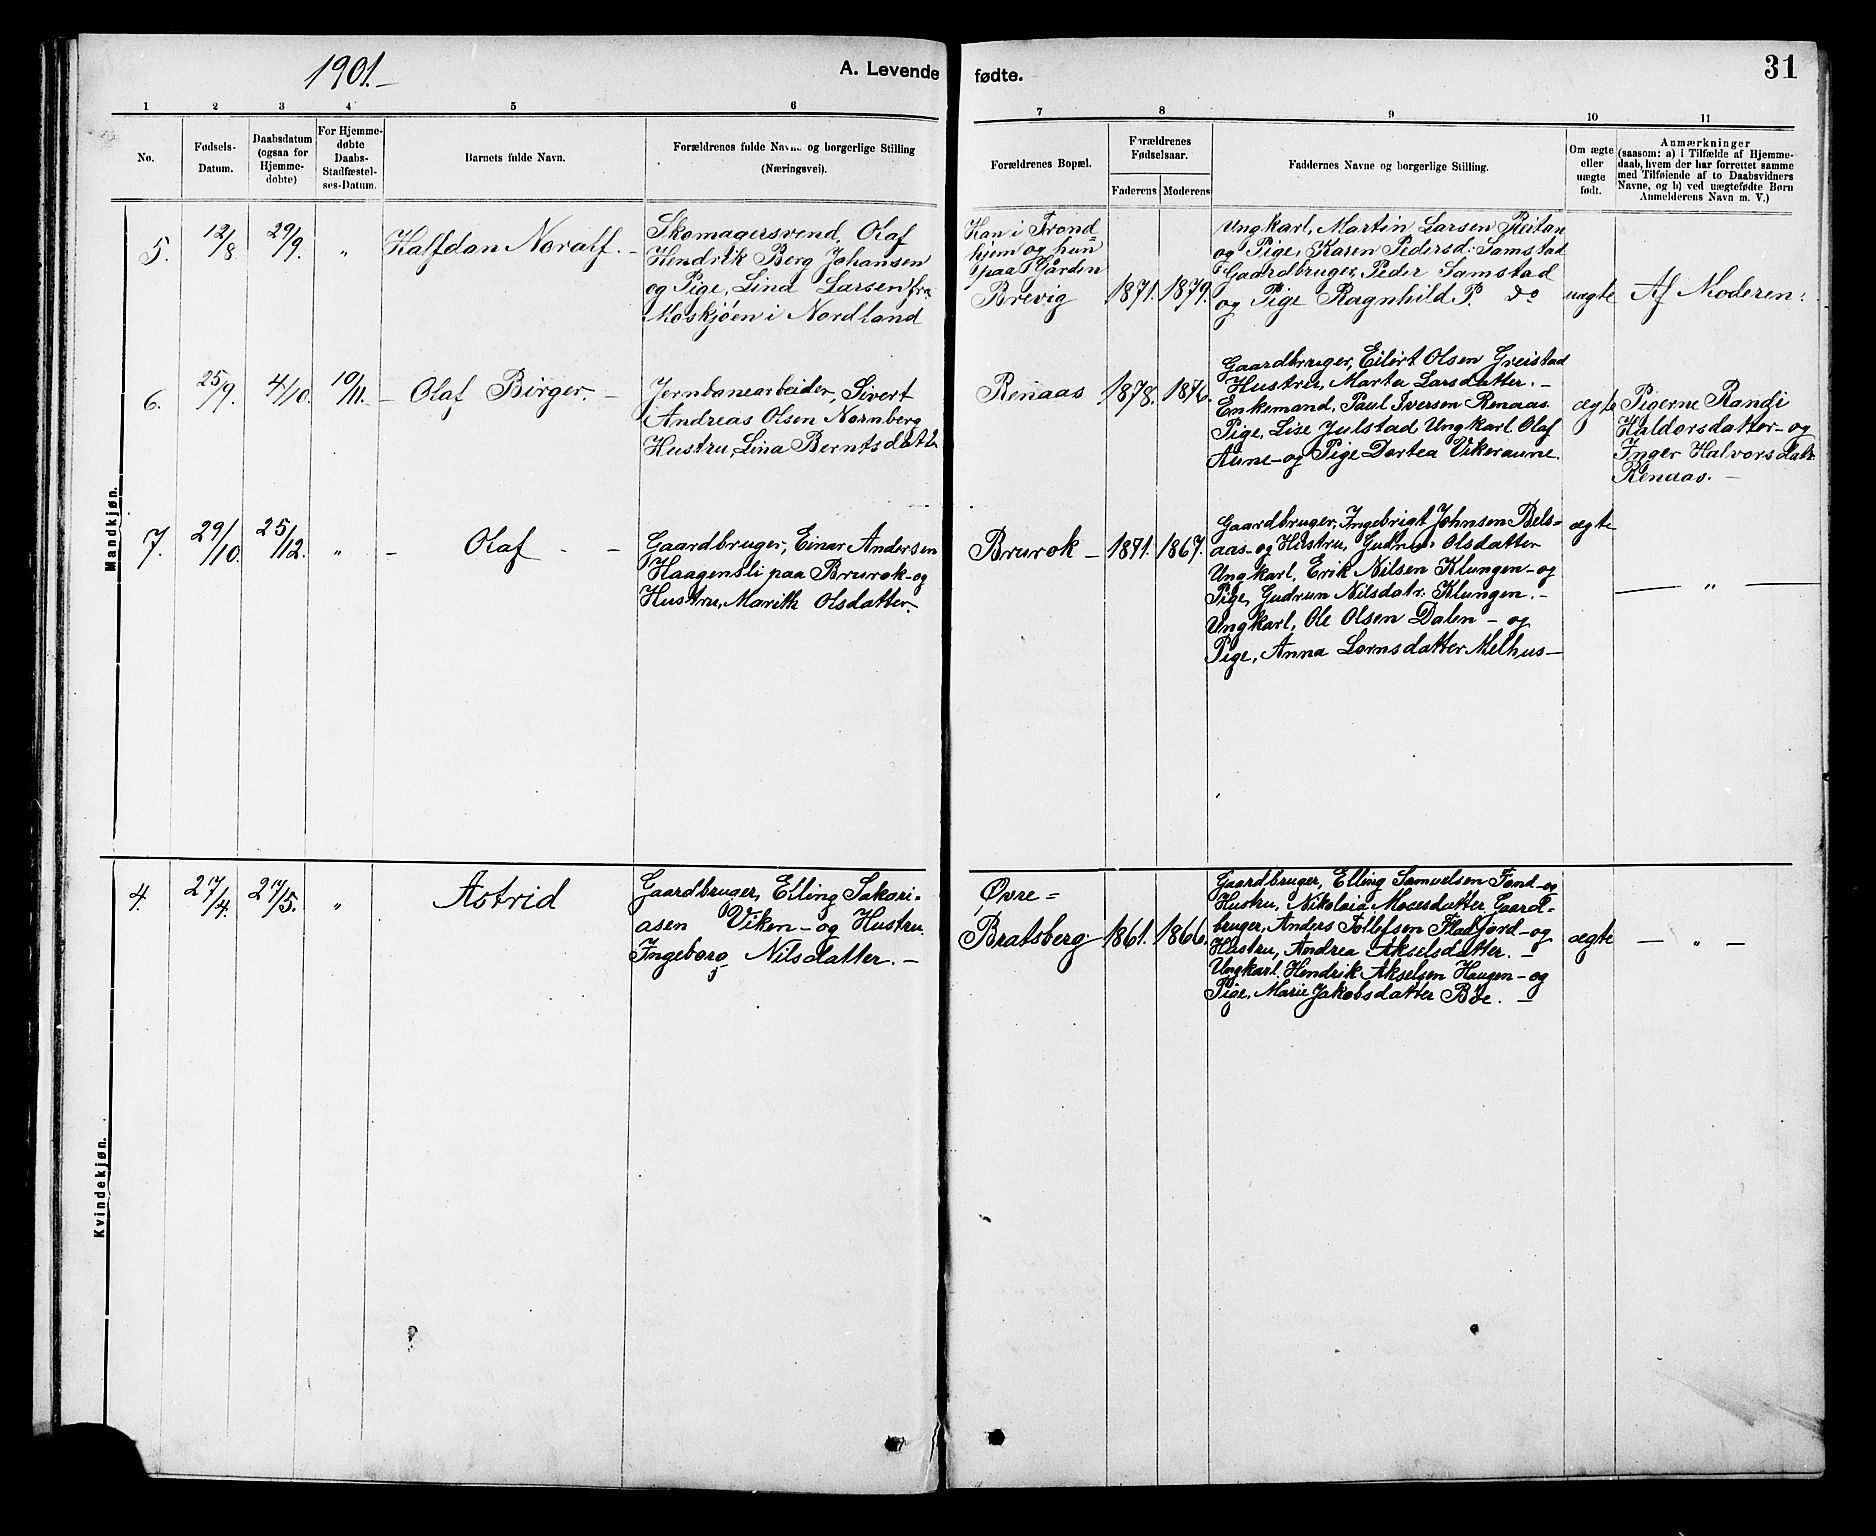 1901.-
A. Levende
fødte.
31
1 2 3 4 5 6 7 8 9 10 11
No.
Fødsels-
Datum.
Daabsdatum
(ogsaa for
Hjemme-
døbte)
For Hjemme-
døbte
Daabs-
Stadfæstel-
ses-Datum.
Barnets fulde Navn.
Forældrenes fulde Navne og borgerlige Stilling
(Næringsvei).
Forældrenes Bopæl.
Forældrenes
Fødselsaar.
Faderens Moderens
Faddernes Navne og borgerlige Stilling.
Om ægte
eller
uægte
født.
Anmærkninger
(saasom: a) i Tilfælde af Hjemme-
daab, hvem der har forrettet samme
med Tilføiende af to Daabsvidners
Navne, og b) ved uægtefødte Børn
Anmelderens Navn m. V.)
Mandkjøn.
5.
12/8.
29/9.
"
Halfdan Noralf. -
Skomagersvend, Olaf
Hendrik Berg Johansen
og Pige, Lina Larsen fra
Moskjøen i Nordland
Han i Trond=
hjem og hun
paa Gården
Brevig
1871.
1879.
Ungkarl, Martin Larsen Reitan
og Pige, Karen Pedersd: Samstad
Gaardbruger, Peder Samstad
og Pige Ragnhild P. do
uægte
Af Moderen:
6.
25/9.
4/10.
10/11.
Olaf Birger. -
Jernbanearbeider, Sivert
Andreas Olsen Nornberg
Hustru, Lina Berntsdatter
Renaas
1878.
1876.
Gaardbruger, Eilert Olsen Greistad
Hustru, Marta Larsdatter. -
Enkemand, Paul Iversen Renaas.
Pige, Lise Julstad Ungkarl Olaf
Aune - og Pige Dortea Vikeraune.
ægte
Pigerne Randi
Haldorsdatter - og
Inger Halvorsdatr
Renaas. -
7.
29/10.
25/12.
"
- Olaf - -
Gaardbruger, Einar Andersen
Haagensli paa Brurok - og
Hustru, Marith Olsdatter.
Brurok -
1871.
1867.
Gaardbruger, Ingebrigt Johnsen Bels=
aas - og Hustru, Gudrun Olsdatter
Ungkarl, Erik Nilsen Klungen - og
Pige, Gudrun Nilsdatr: Klungen. -
Ungkarl, Ole Olsen Dalen - og
Pige, Anna Lornsdatter Melhus -
ægte
— " —
Kvindekjøn.
4.
27/4.
27/5.
"
Astrid
Gaardbruger, Elling Sakari=
asen Viken - og Hustru.
Ingeborg Nilsdatter. -
Øvre =
Bratsberg.
1861.
1866.
Gaardbruger, Elling Samuelsen Fond - og
Hustru, Nikolaia Moesdatter Gaard=
bruger, Anders Tollefsen Fladfjord - og
Hustru, Andrea Akselsdatter. -
Ungkarl. Hendrik Akselsen Haugen - og
Pige, Marie Jakobsdatter Bøe. -
ægte
— " —